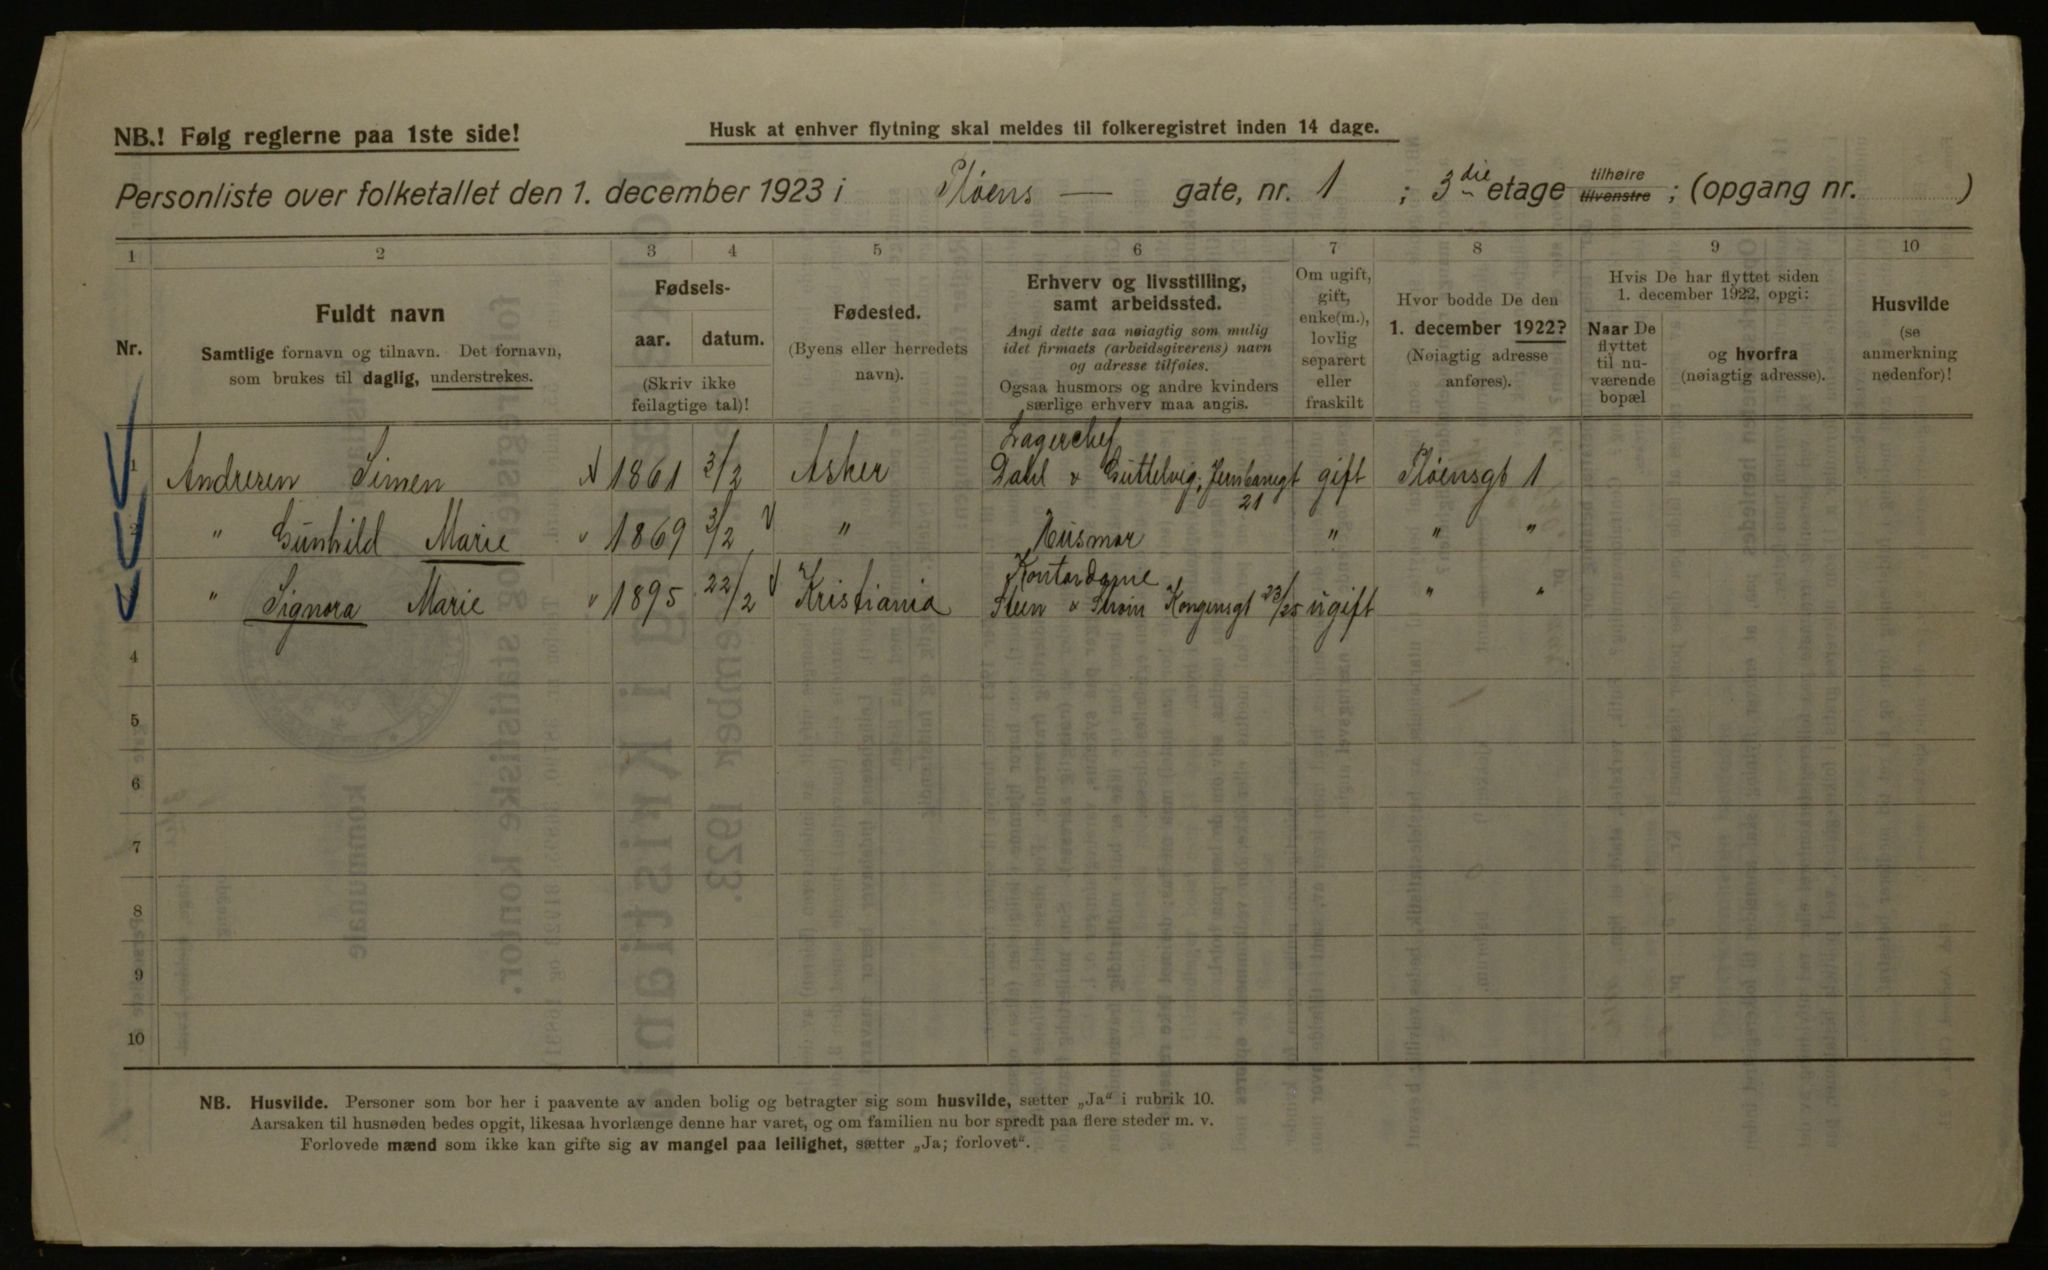 NB.! Følg reglerne paa 1ste side!
Husk at enhver flytning skal meldes til folkeregistret inden 14 dage.
Personliste over folketallet den 1. december 1923 i Pløens — gate, nr. 1 ; 3die etage tilhøire tilvenstre ; (opgang nr. )
1 2 3 4 5 6 7 8 9 10
Nr.
Fuldt navn
Samtlige fornavn og tilnavn. Det fornavn,
som brukes til daglig, understrekes.
Fødsels-
aar. datum.
(Skriv ikke
feilagtige tal)!
Fødested.
(Byens eller herredets
navn).
Erhverv og livsstilling,
samt arbeidssted.
Angi dette saa nøiagtig som mulig
idet firmaets (arbeidsgiverens) navn
og adresse tilføies.
Ogsaa husmors og andre kvinders
særlige erhverv maa angis.
Om ugift,
gift,
enke(m.),
lovlig
separert
eller
fraskilt
Hvor bodde De den
1. december 1922?
(Nøiagtig adresse
anføres).
Hvis De har flyttet siden
1. december 1922, opgi:
Naar De
flyttet
til nu-
værende
bopæl
og hvorfra
(nøiagtig adresse).
Husvilde
(se
anmerkning
nedenfor)!
Lagerchef
1 Andresen Simen 1861 3/2 Asker Dahl & Guttelvig, Jernbanegt gift Pløensgt 1
21
2 " Gunhild Marie 1869 3/2 " Husmor " " "
Kontordame
" Signora Marie 1895 22/2 Kristiania Steen & Strøm Kongensgt 23/25 ugift " "
4
5
6
7
8
9
10
NB. Husvilde. Personer som bor her i paavente av anden bolig og betragter sig som husvilde, sætter „Ja" i rubrik 10.
Aarsaken til husnøden bedes opgit, likesaa hvorlænge denne har varet, og om familien nu bor spredt paa flere steder m. v.
Forlovede mænd som ikke kan gifte sig av mangel paa leilighet, sætter „Ja; forlovet".